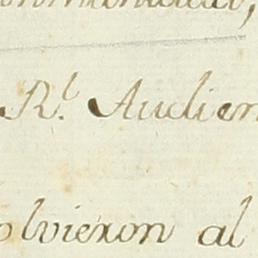 Rl. Audien
olvieron al